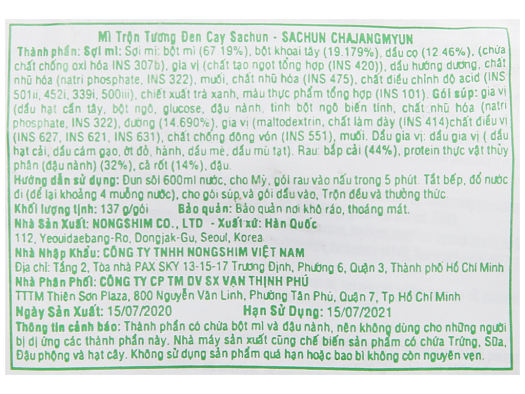 Mì Trộn Tương Đen Cay Sachun - SACHUN CHAJANGMYUN
Thành phần: Sợi mì: Sợi mì: bột mì (67.19%), bột khoai tây (19.179%), dầu cọ (12.46%), (chứa
chất chống oxi hóa INS 307b), gia vị (chất tạo ngọt tổng hợp (INS 420)), dầu hướng dương, chất
nhũ hóa (natri phosphate, INS 322), muối, chất nhũ hóa (INS 475), chất điều chỉnh độ acid (INS
501ii, 452i, 339i, 500iii), chiết xuất trà xanh, màu thực phẩm tổng hợp (INS 101). Gói súp: gia vị
(dầu hạt cần tây, bột ngô, glucose, đậu nành, tinh bột ngô biến tính, chất nhũ hóa (natri
phosphate, INS 322), đường (14.690%), gia vị (maltodextrin, chất làm dày (INS 414)chất điều vị
(INS 627, INS 621, INS 631), chất chống đông vón (INS 551), muối. Dầu gia vị: dầu gia vị ( dầu
hạt cải, dầu cám gạo, ớt đỏ, hành, dầu mè, dầu mù tạt). Rau: bắp cải (44%), protein thực vật thủy
phân (đậu nành) (32%), cà rốt (14%), đậu.
Hướng dẫn sử dụng: Đun sôi 600ml nước, cho Mỳ, gói rau vào nấu trong 5 phút. Tắt bếp, đổ nước
đi (để lại khoảng 4 muỗng nước), cho gói súp, và gói dầu vào, Trộn đều và thưởng thức.
Khối lượng tịnh: 137 g/gói Bảo quản: Bảo quản nơi khô ráo, thoáng mát.
Nhà Sản Xuất: NONGSHIM CO., LTD - Xuất xứ: Hàn Quốc
112, Yeouidaebang-Ro, Dongjak-Gu, Seoul, Korea
Nhà Nhập Khẩu: CÔNG TY TNHH NONGSHIM VIỆT NAM
Địa chỉ: Tầng 2, Tòa nhà PAX SKY 13-15-17 Trương Định, Phường 6, Quận 3, Thành phố Hồ Chí Minh
Nhà Phân Phối: CÔNG TY CP TM DV SX VẠN THỊNH PHÚ
TTTM Thiên Sơn Plaza, 800 Nguyễn Văn Linh, Phường Tân Phú, Quận 7, Tp Hồ Chí Minh
Ngày Sản Xuất: 15/07/2020 Hạn Sử Dụng: 15/07/2021
Thông tin cảnh báo: Thành phần có chứa bột mì và đậu nành, nên không dùng cho những người
bị dị ứng các thành phần này. Nhà máy sản xuất cũng chế biến sản phẩm có chứa Trứng, Sữa,
Đậu phộng và hạt cây. Không sử dụng sản phẩm quá hạn hoặc bao bì không còn nguyên vẹn.